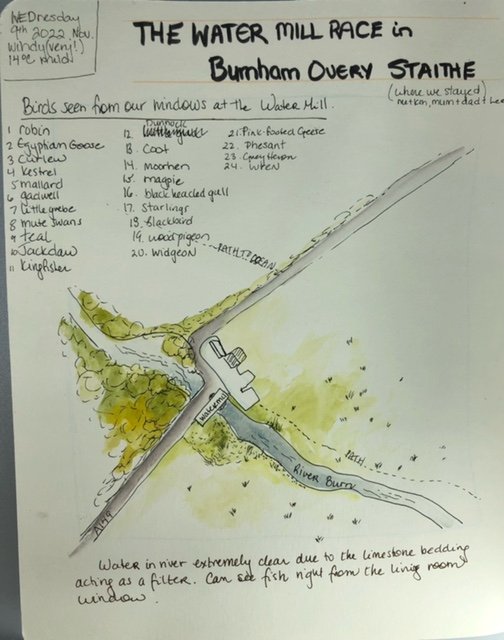 WEDnesday
9th 2022 Nov.
windy (very!)
14°C
THE WATER MILL RACE in
Burnham OVERY STAITHE
(where we stayed)
mum + dad +
Birds seen from our windows at the Water Mill.
1 robin
2 Egyptian Goose
3 Curlew
4 kestrel
5 mallard
6 gadwell
7 little grebe
8 mute swans
9 teal
10 Jackdaw
11 Kingfisher
12. Dunnock
13. Coot
14. moorhen
15. magpie
16. black headed gull
17. Starlings
18. Blackbird
19. woodpigeon
20. widgeon
21. Pink-Footed Geese
22. Phesant
23. Grey Heron
24. WREN
PATH TO OCEAN
Watermill
PATH
River Burn
A149
Water in river extremely clear due to the limestone bedding
acting as a filter. Can see fish right from the living room
window.